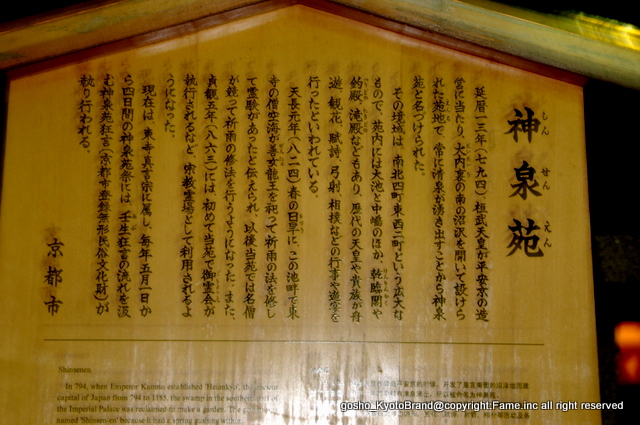 神泉苑
しんせんえん
延暦一三年（七九四）桓武天皇が平安京の造
営に当たり、大内裏の南の沼沢を開いて設けら
れた苑地で、常に清泉が湧き出すことから神泉
苑と名づけられた。
その境域は、南北四町東西二町という広大な
もので、苑内には大池と中嶋のほか、乾臨閣や
釣殿、滝殿などもあり、歴代の天皇や貴族が舟
遊、観花、賦詩、弓射、相撲などの行事や遊宴を
行ったといわれている。
天長元年（八二四）春の日旱に、この池畔で東
寺の僧空海が善女龍王を祀って祈雨の法を修し
て霊験があったと伝えられ、以後当苑では名僧
が競って祈雨の修法を行うようになった。また、
貞観五年（八六三）には、初めて当苑で御霊会が
執行されるなど、宗教霊場として利用されるよ
うになった。
現在は、東寺真言宗に属し、毎年五月一日か
ら四日間の神泉苑祭には、壬生狂言の流れを汲
む神泉苑狂言（京都市登録無形民俗文化財）が
執り行われる。
京都市
Shinsenen
In 794, when Emperor Kammu established 'Heiankyo', the ancient
capital of Japan from 794 to 1185, the swamp in the southern part of
the Imperial Palace was reclaimed to make a garden. The garden was
named 'Shinsen-en' because it had a spring gushing within.
gosho_KyotoBrand@copyright.Fame.inc all right reserved